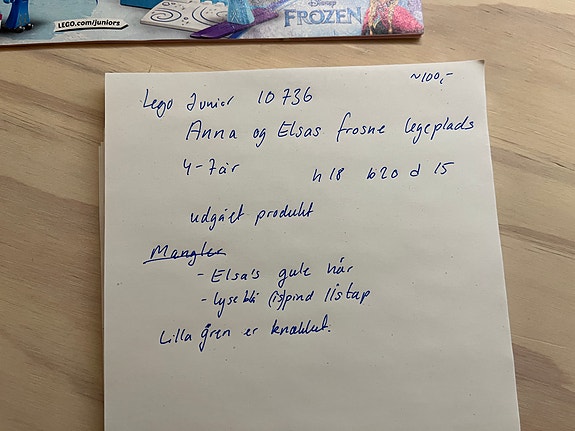 LEGO.com/juniors
Disney
FROZEN
~100,-
Lego Junior 10736
Anna og Elsas frosne legeplads
4-7 år h18 b20 d 15
udgået produkt
Mangler
- Elsa's gule hår
- lyseblå (is)pind / istap
Lilla gren er knækket.